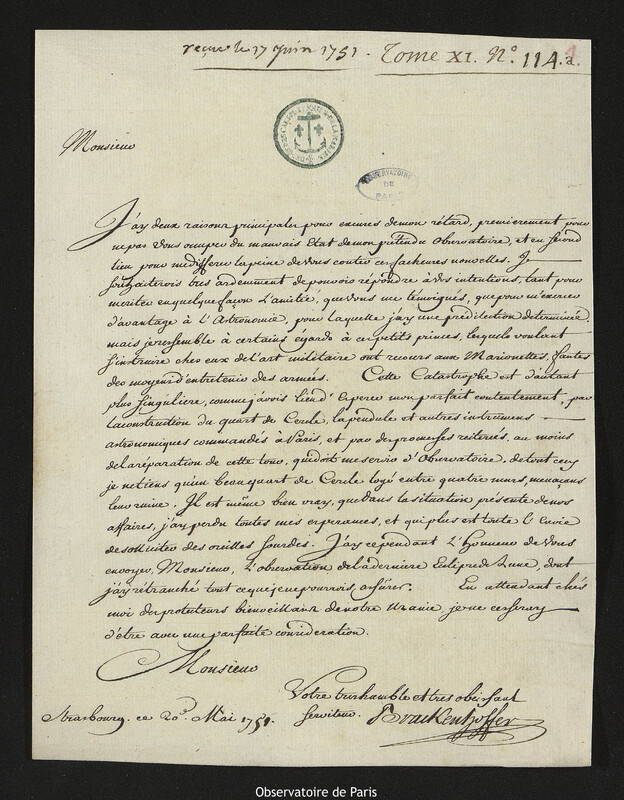 reçue le 17 Juin 1751. Tome XI. N.º 114.a.
Monsieur
OBSERVATOIRE
DE
PARIS
J'ay deux raisons principales pour excuser de mon rétard, premierement pour
ne pas vous occuper du mauvais Etat de mon prétendu Observatoire, et en second
lieu pour me differer la peine de vous conter ces facheuses nouvelles. Je
souhaiterois tres ardemment de pouvoir répondre à vos intentions, tant pour
meriter en quelque façon l'amitié, que vous me témoignés, que pour m'exercer
d'avantage à l'Astronomie, pour laquelle j'ay une prédilection determinée
mais je resemble à certains égards à ces petits princes, lesquels voulant
s'instruire chez eux de l'art militaire ont recours aux Marionettes, fautes
des moyens d'entretenir des armées. Cette Catastrophe est d'autant
plus singuliere, comme j'avois lieu d'esperer mon parfait contentement, par
la construction du quart de Cercle, la pendule et autres instrumens
astronomiques commandés à Paris, et par des promesses reiterés, au moins
de la réparation de cette tour, qui doit me servir d'Observatoire, de tout cecy
je ne tiens qu'un beau quart de Cercle logé entre quatre murs, menaçans
leur ruine. Il est même bien vray, que dans la situation présente de nos
affaires, j'ay perdu toutes mes esperances, et qui plus est toute l'Envie
de solliciter des oreilles sourdes. J'ay cependant l'honneur de vous
envoyer, Monsieur, l'observation de la derniere Eclipse de Lune, dont
j'ay rétranché tout ce que je ne pourrois assûrer. En attendant chés
moi des protecteurs bienveillans de notre Uranie, je ne cesseray
d'être avec une parfaite consideration.
Monsieur
Votre tres humble et tres obeissant
Strasbourg, ce 20.e Mai 1751. serviteur. Brackenhoffer
Observatoire de Paris